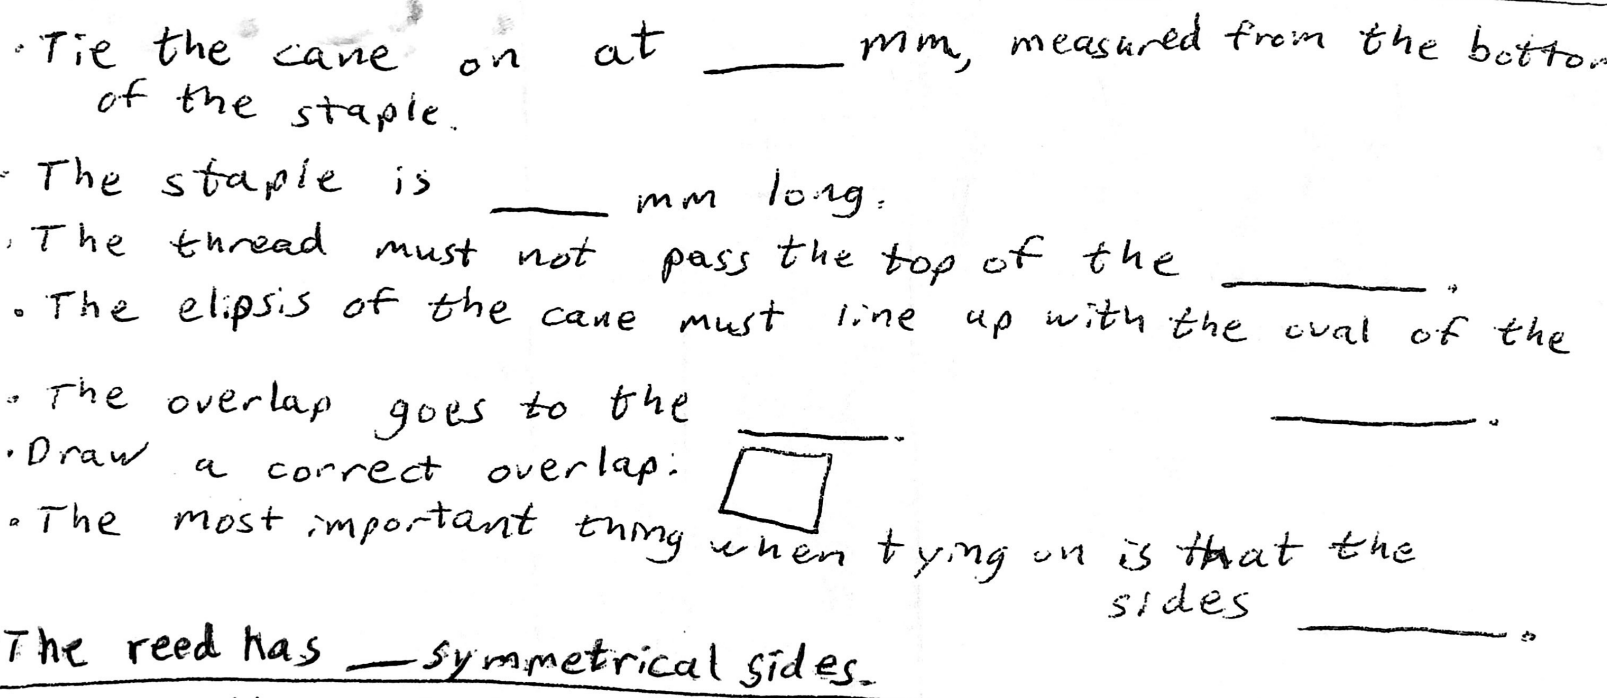 • Tie the cane on at ____ mm, measured from the bottom
of the staple.
• The staple is ____ mm long.
• The thread must not pass the top of the ____.
• The elipsis of the cane must line up with the oval of the
____.
• The overlap goes to the ____.
• Draw a correct overlap:
• The most important thing when tying on is that the
sides ____.
The reed has __ symmetrical sides.